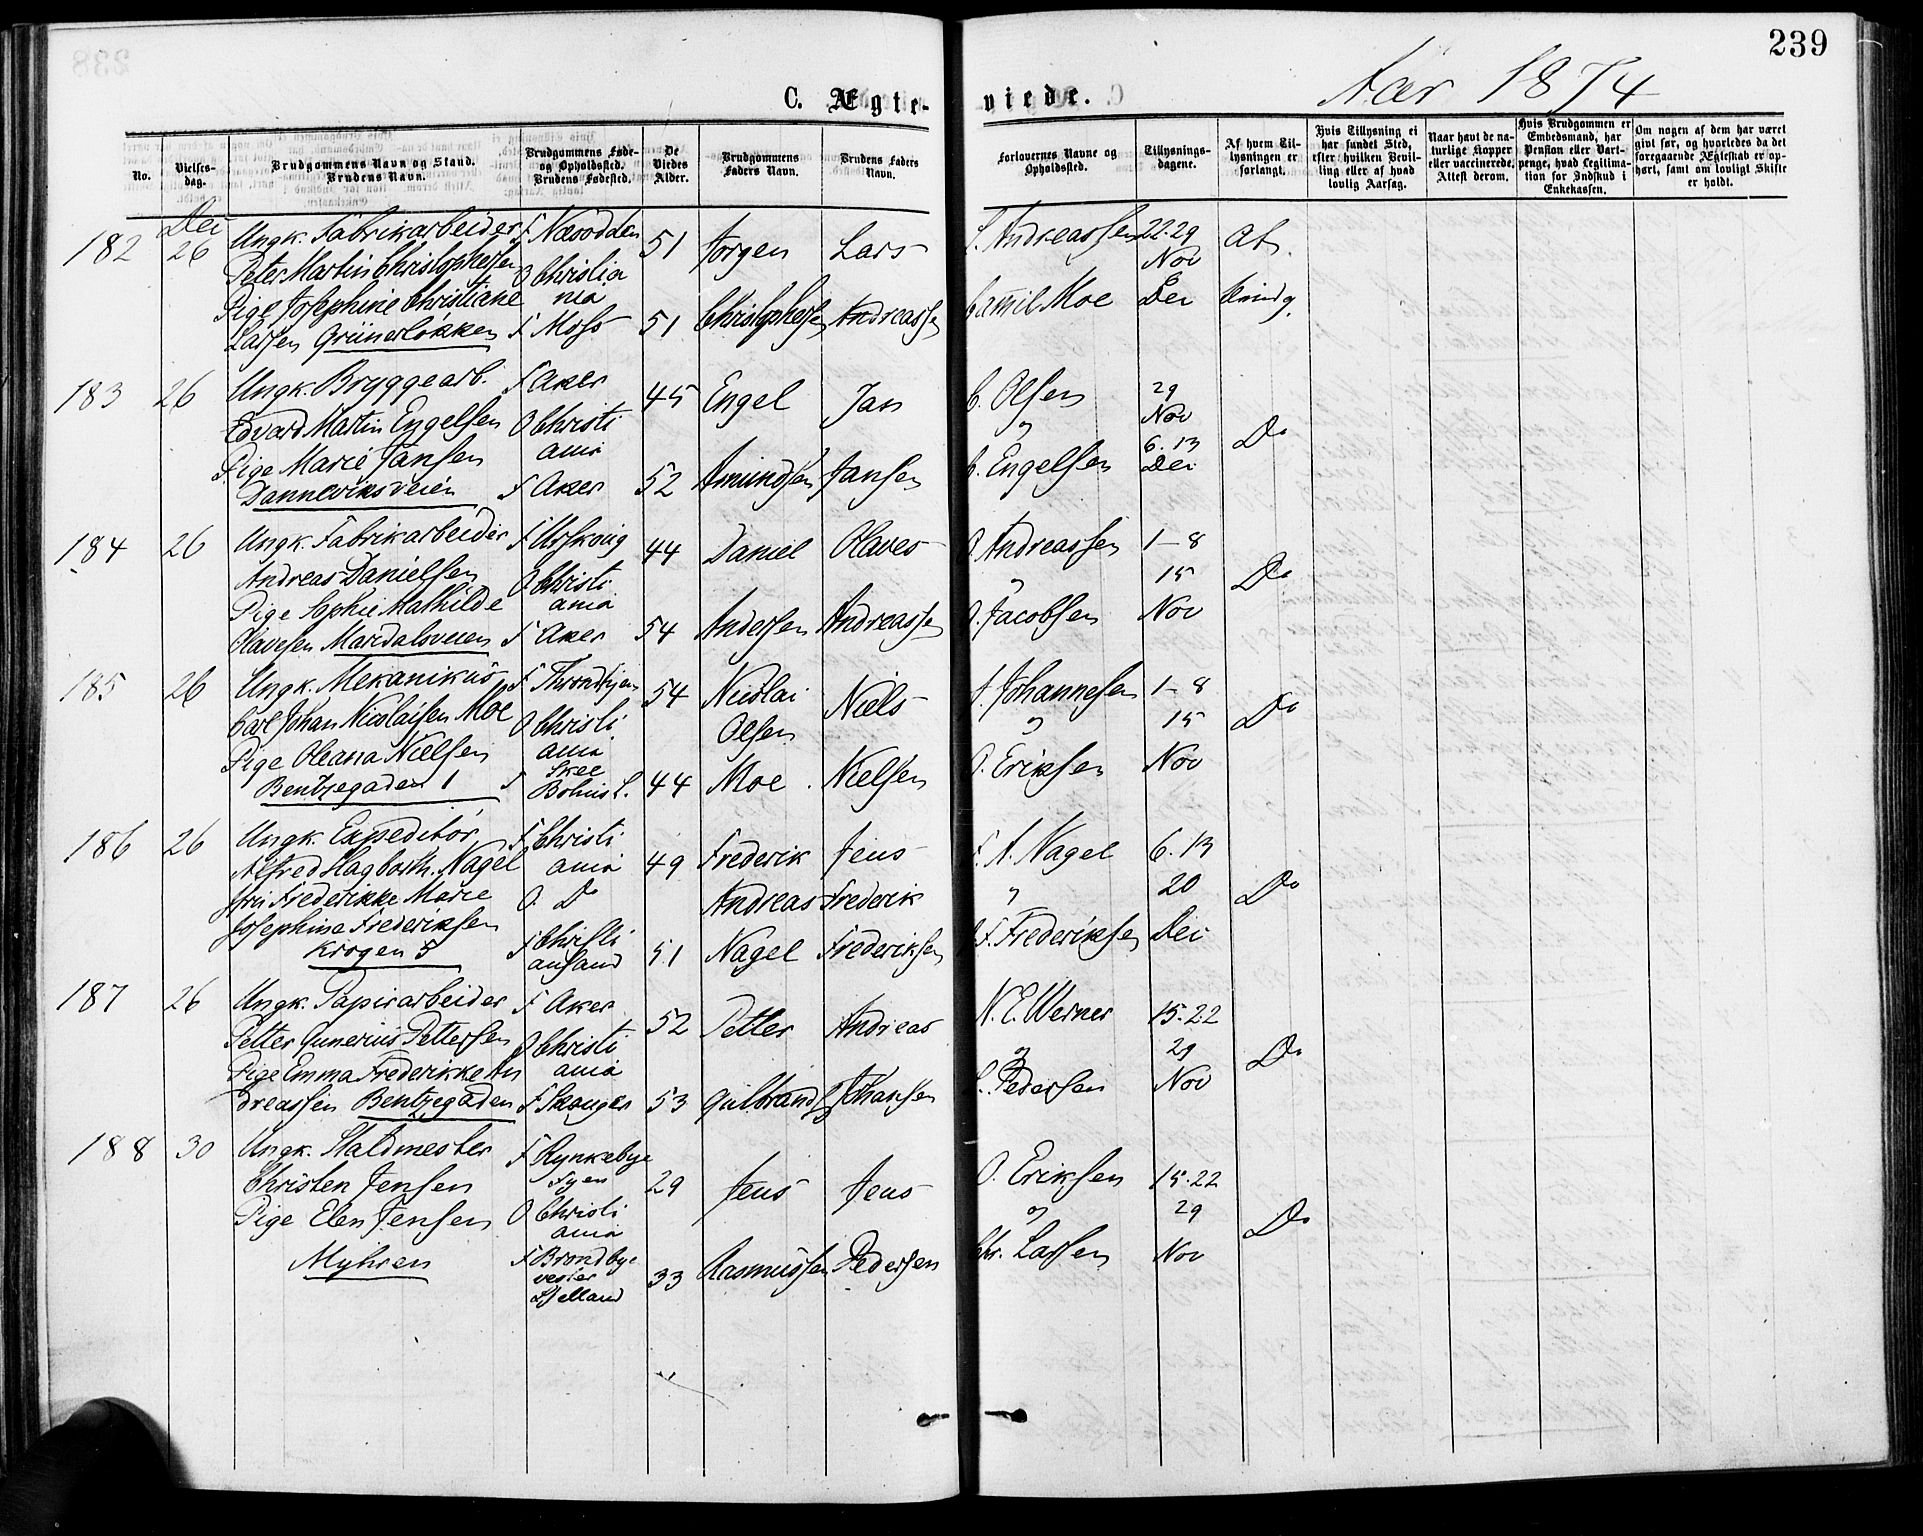 239
C. Ægte-
viede.
Aar 1874
No.
Vielses-
dag.
Brudgommens Navn og Stand.
Brudens Navn.
Brudgommens Føde-
og Opholdssted.
Brudens Fødested.
De
Viedes
Alder.
Brudgommens
Faders Navn.
Brudens Faders
Navn.
Forlovernes Navne og
Opholdssted.
Tillysnings-
dagene.
Af hvem Til-
lysningen er
forlangt.
Hvis Tillysning ei
har fundet Sted,
efter hvilken Bevil-
ling eller af hvad
lovlig Aarsag.
Naar havt de na-
turlige Kopper
eller vaccinerede,
Attest derom.
Hvis Brudgommen er
Embedsmand, har
Pension eller Vart-
penge, hvad Legitima-
tion for Indskud i
Enkekassen.
Om nogen af dem har været
gift før, og hvorledes da det
foregaaende Ægteskab er op-
hørt, samt om lovligt Skifte
er holdt.
Dec
182 26 Ungk. Fabrikarbeider F Næsodden 51 Jørgen Lars S. Andreassen 22.29
Peter Martin Christophersen O Christia Nov
Pige Josephine Christiane nia Camil Moe Dec
Larsen Grünerløkken F Moss 51 Christophersen Andreassen
183 26 Ungk. Bryggearb. F Aker 45 Engel Jan C. Olsen 29
Edvard Martin Engelsen O Christi " Nov
Pige Marie Jansen ania C. Engelsen 6. 13 Do
Danneviksveien F Aker 52 Amundsen Jansen Dec
184 26 Ungk. Fabrikarbeider F Urskoug 44 Daniel Olaves O. Andreassen 1-8
Andreas Danielsen O Christi " 15 Do
Pige Sophie Mathilde ania O. Jacobsen Nov
Olavesen Maridalsveien F Aker 54 Andersen Andreassen
185 26 Ungk. Mekanikus F Throndhjem 54 Nicolai Niels J. Johannesen 1-8
Carl Johan Nicolaisen Moe O Christi Olsen " 15 Do
Pige Oleana Nielsen ania O. Eriksen Nov
Bentzegaden 1 F Skee
Bohus L. 44 Moe Nielsen
186 26 Ungk. Expeditør F Christi
Alfred Hagbarth. Nagel ania 49 Frederik Jens F. A. Nagel 6. 13
Frederikke Marie O. Do Andreas Frederik " 20 Do
Josephine Frederiksen F Christi F. Frederiksen Dec
Krogen 5 ansand 51 Nagel Frederiksen
187 26 Ungk. Papirarbeider F Aker 52 Petter Andreas N. E. Werner 15.22
Petter Gunerius Pettersen O Christi " 29 Do
Pige Emma Frederikke An ania S. Pedersen Nov
dreassen Bentzegaden F Skouger 53 Gulbrands Johansen
188 30 Ungk. Staldmester F Rynkebye
Christen Jensen Fyen 29 Jens Jens O. Eriksen 15.22
Pige Elen Jensen O Christi " 29 Do
ania
Myhren F Brondbye
vester 33 Rasmussen Pedersen Chr. Larsen Nov
Sjelland